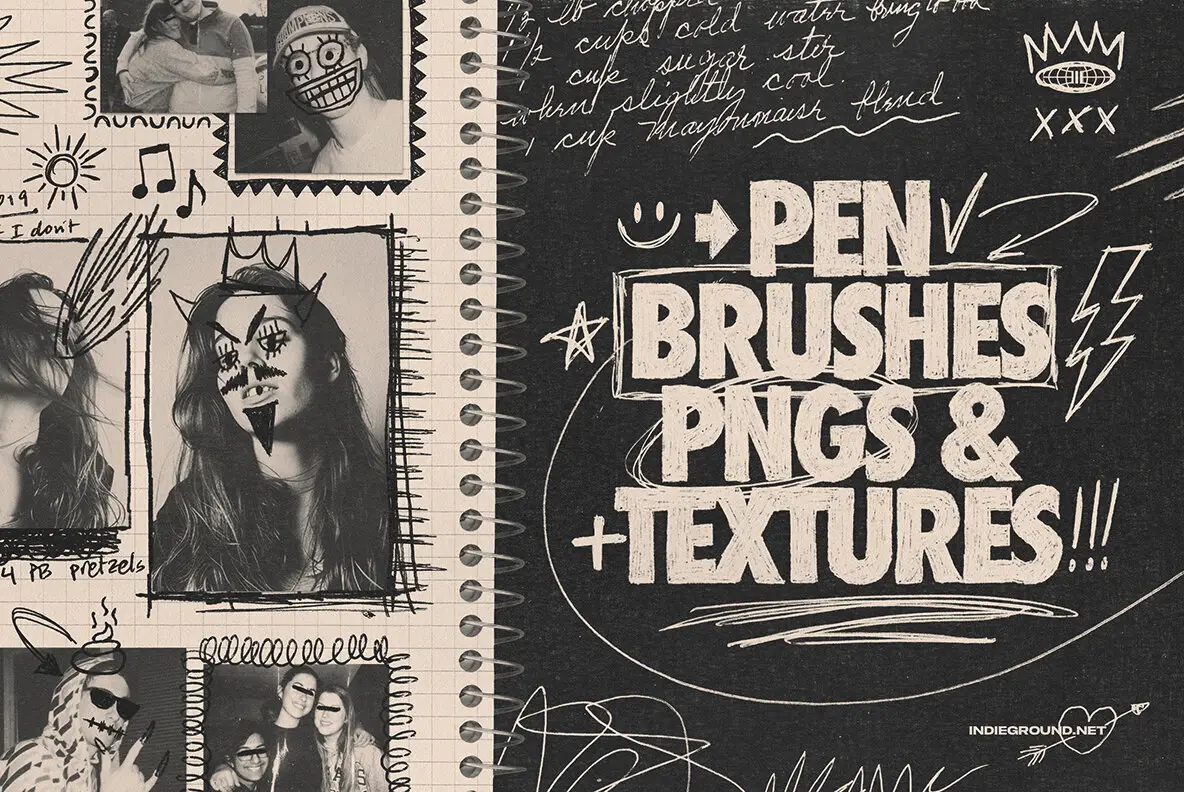 I don't
4 PB pretzels
1/2 cups cold water
1 cup sugar stir
when slightly cool.
1 cup mayonnaise blend
XXX
PEN
BRUSHES
PNGS &
+TEXTURES!!!
INDIEGROUND.NET